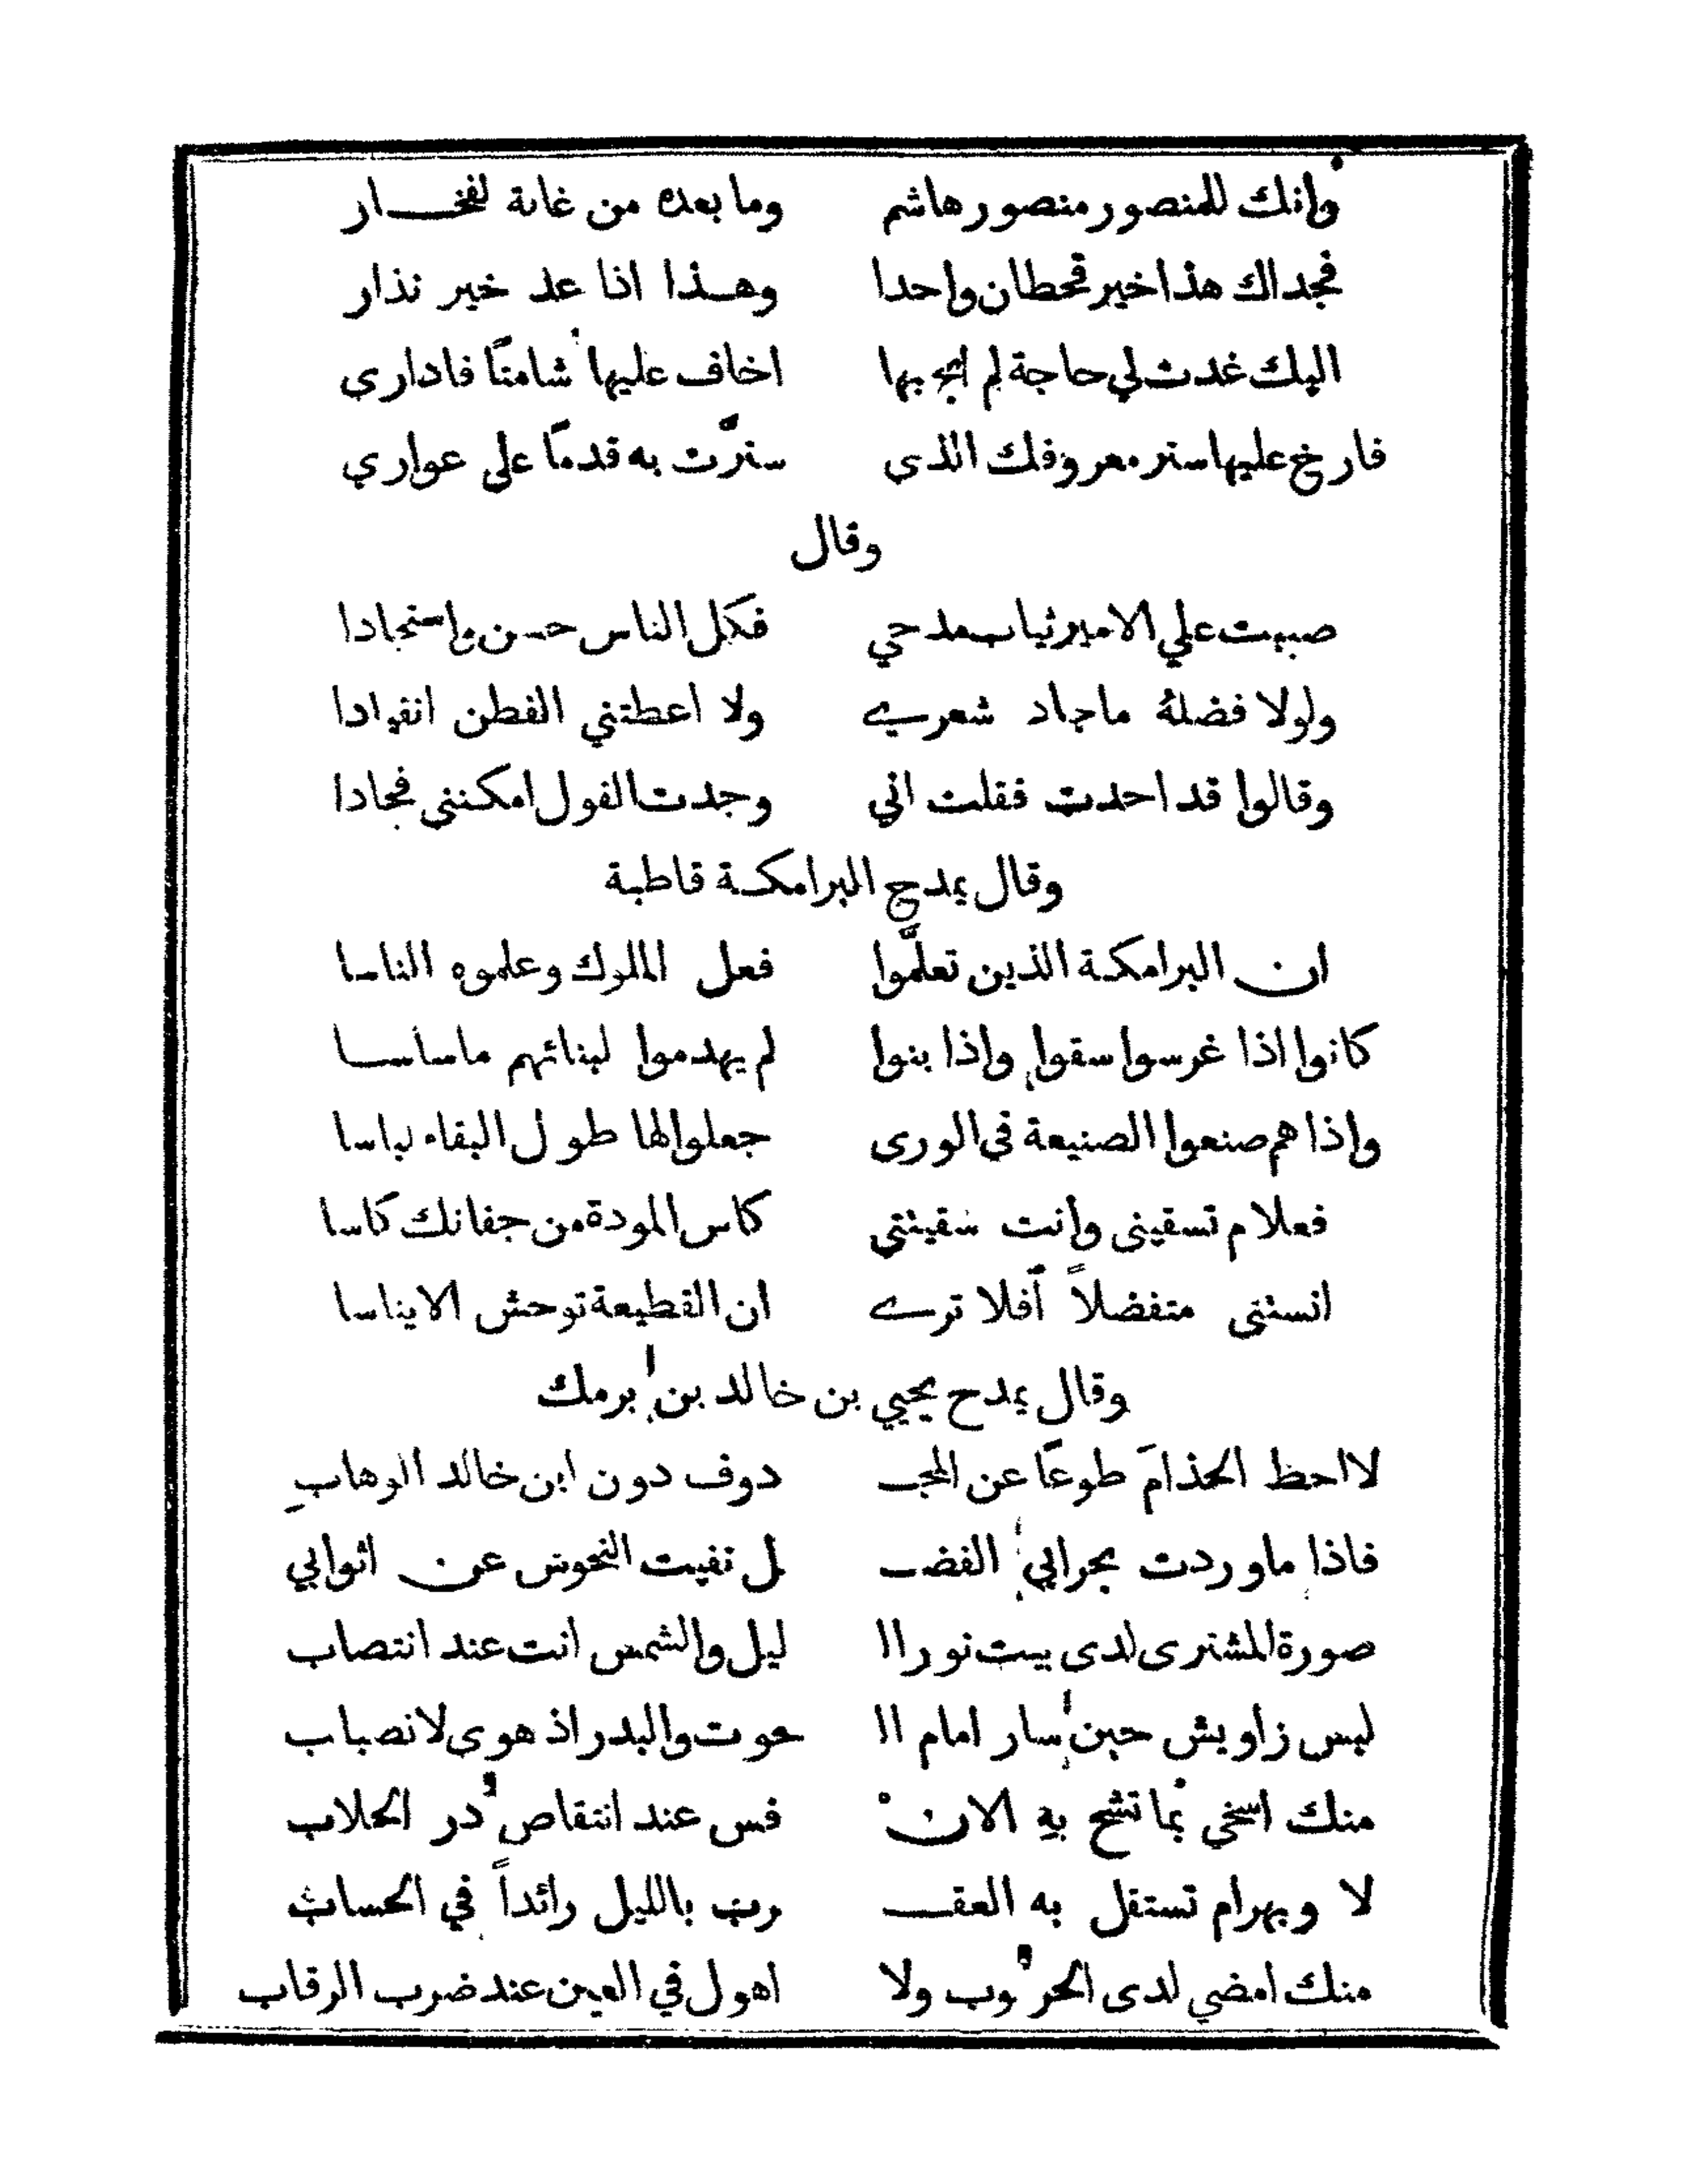 وانك للمنصور منصور هاشم وما بعده من غاية لفخـــار
فجداك هذا خير قحطان واحدا وهـذا اذا عد خير نذار
اليك غدت لي حاجة لم ابح بها اخاف عليها شامتًا فادارى
فارخ عليها ستر معروفك الذى سترّت به قدمًا على عواري
وقال
صببت علي الامير ثياب مدحي فكل الناس حسن واستجادا
ولولا فضلهُ ماجاد شعري ولا اعطتني الفطن انقيادا
وقالوا قد اجدت فقلت اني وجدت القول امكنني فجادا
وقال يمدح البرامكـة قاطبة
ان البرامكة الذين تعلّموا فعل الملوك وعلموه الناسا
كانوا اذا غرسوا سقوا واذا بنوا لم يهدموا لبنائهم ماساسـا
واذا هم صنعوا الصنيعة في الورى جعلوا لها طول البقاء لباسا
فعلام تسقيني وأنت سقيتني كاس المودة من جفانك كاسا
انستنى متفضلاً أفلا ترى ان القطيعة توحش الايناسا
وقال يمدح يحيي بن خالد بن برمك
لااحظ الحذامَ طوعًا عن المجـ دوف دون ابن خالد الوهابِ
فاذا ماوردت بحرابي الفضـ ل نفيت النحوس عن اثوابي
صورة المشترى لدى بيت نور ال ليل والشمس انت عند انتصاب
ليس زاويش حين سار امام ال حوت والبدر اذ هوى لانصباب
منك اسخي بما تشح بهِ الانـ فس عند انتقاص در الحلاب
لا وبهرام تستقل به العقـ رب بالليل رائداً في الحساب
منك امضي لدى الحروب ولا اهول في العين عند ضرب الرقاب